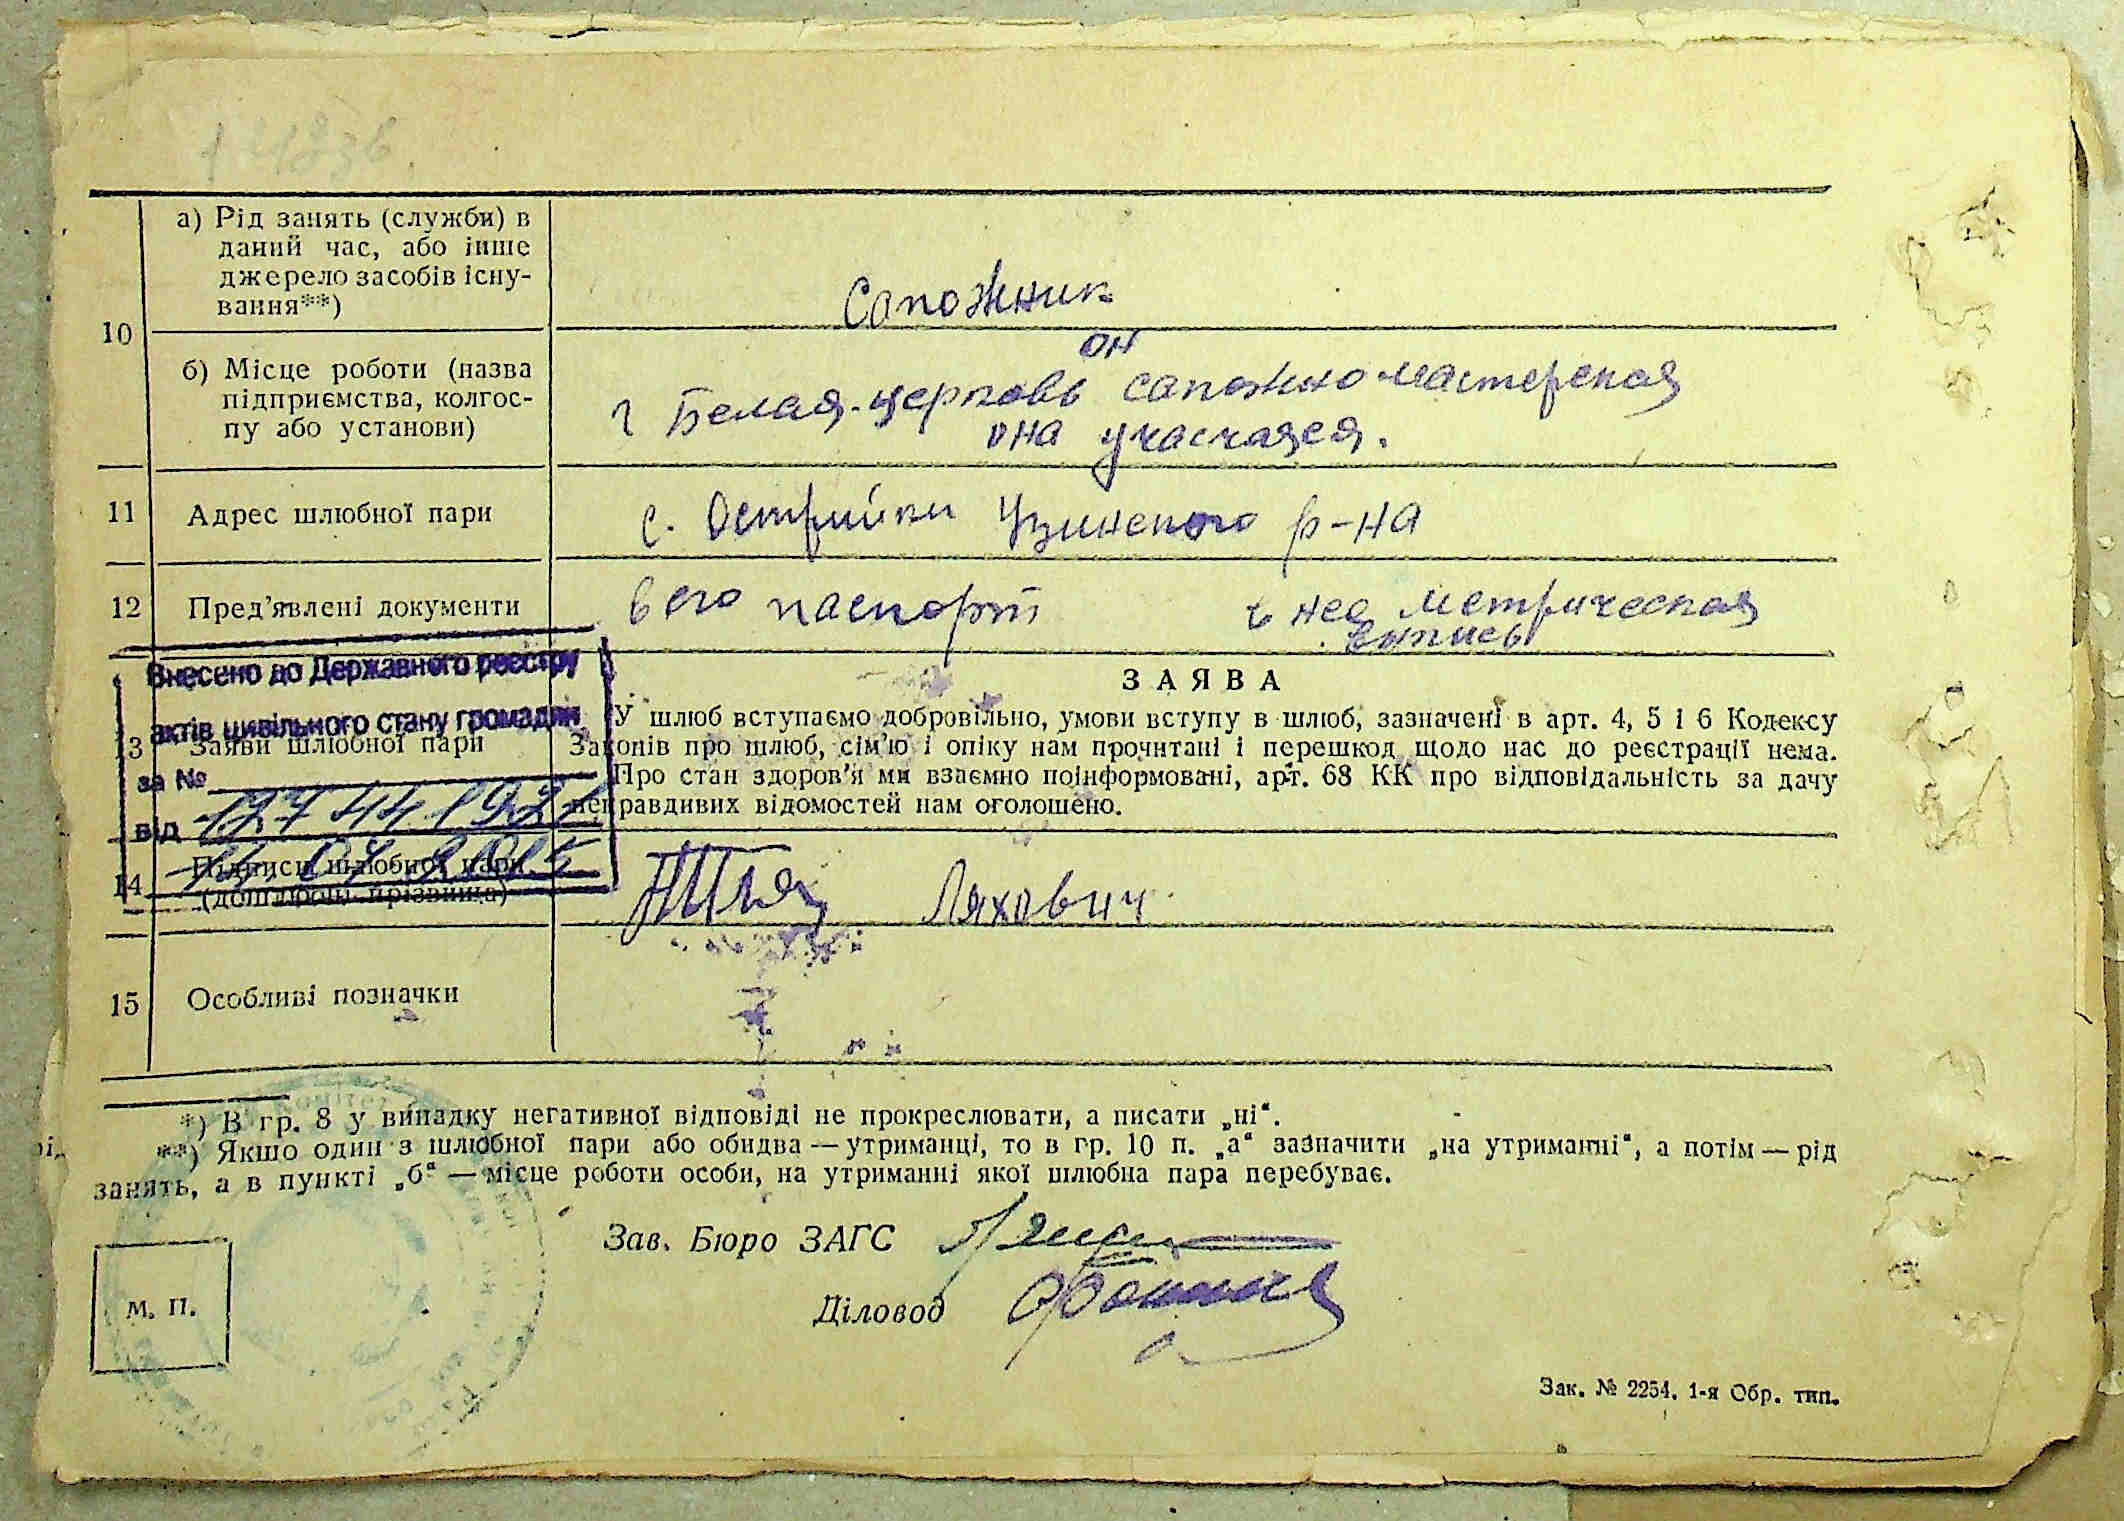 10
а) Рід занять (служби) в
даний час, або інше
джерело засобів існу-
вання**)
Сапожник
б) Місце роботи (назва
підприємства, колгос-
пу або установи)
он
г Белая-церковь сапожно мастерская
она учасчаяся.
11 Адрес шлюбної пари
с. Острійки Узинского р-на
12 Пред’явлені документи
в его паспорт в нее метрическая
выпись
Внесено до Державного реєстру
актів цивільного стану громадян
за №
від
13 Заяви шлюбної пари
ЗАЯВА
У шлюб вступаємо добровільно, умови вступу в шлюб, зазначені в арт. 4, 5 і 6 Кодексу
Законів про шлюб, сім’ю і опіку нам прочитані і перешкод щодо нас до реєстрації нема.
Про стан здоров’я ми взаємно поінформовані, арт. 68 КК про відповідальність за дачу
неправдивих відомостей нам оголошено.
14 Підписи шлюбної пари
(дошлюбні прізвища)
Ляхович
15 Особливі позначки
*) В гр. 8 у випадку негативної відповіді не прокреслювати, а писати „ні“.
**) Якшо один з шлюбної пари або обидва — утриманці, то в гр. 10 п. „а“ зазначити „на утриманні“, а потім — рід
занять, а в пункті „б“ — місце роботи особи, на утриманні якої шлюбна пара перебуває.
Зав. Бюро ЗАГС
Діловод
М. П.
Зак. № 2254. 1-я Обр. тип.